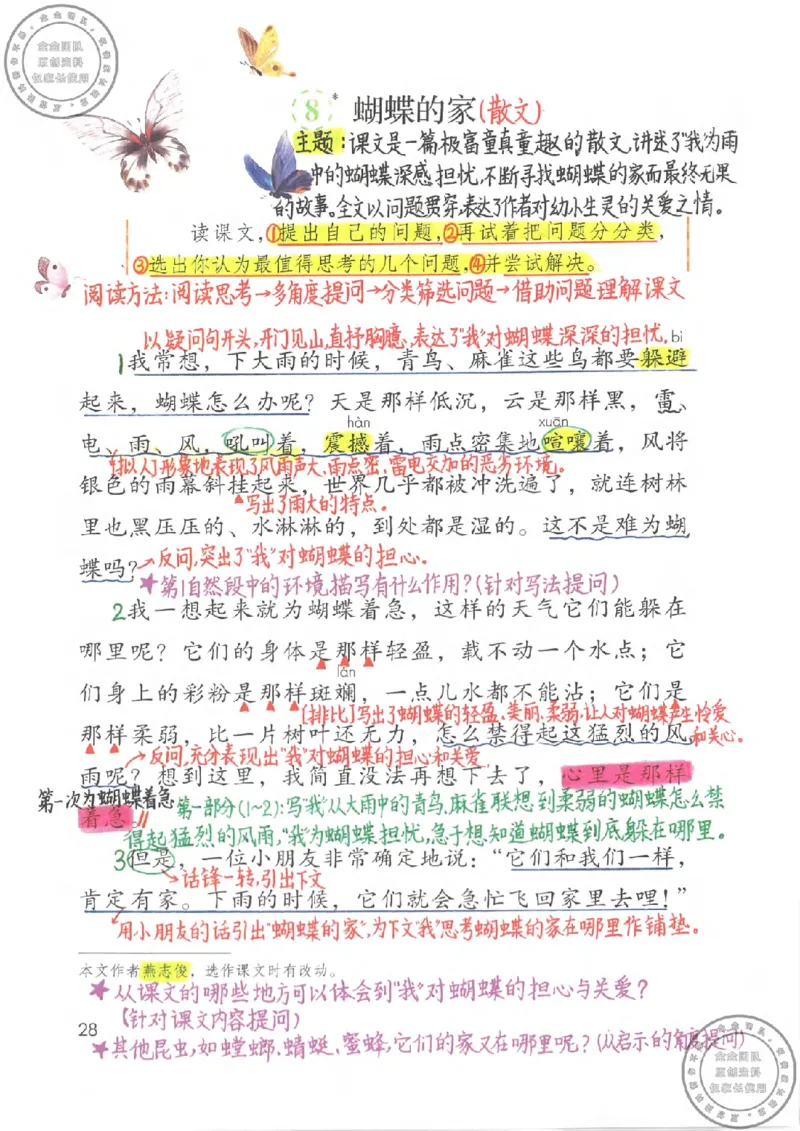 企企团队
原创资料
仅家长使用
8* 蝴蝶的家(散文)
主题:课文是一篇极富童真童趣的散文,讲述了"我"为雨
中的蝴蝶深感担忧,不断寻找蝴蝶的家而最终无果
的故事。全文以问题贯穿,表达了作者对幼小生灵的关爱之情。
读课文,①提出自己的问题,②再试着把问题分分类,
③选出你认为最值得思考的几个问题,④并尝试解决。
阅读方法:阅读思考→多角度提问→分类筛选问题→借助问题理解课文
以疑问句开头,开门见山,直抒胸臆,表达了"我"对蝴蝶深深的担忧。
bì
1我常想,下大雨的时候,青鸟、麻雀这些鸟都要躲避
起来,蝴蝶怎么办呢?天是那样低沉,云是那样黑,雷、
hàn xuān
电、雨、风,吼叫着,震撼着,雨点密集地喧嚷着,风将
拟人,形象地表现了风雨声大、雨点密、雷电交加的恶劣环境。
银色的雨幕斜挂起来,世界几乎都被冲洗遍了,就连树林
写出了雨大的特点。
里也黑压压的、水淋淋的,到处都是湿的。这不是难为蝴
蝶吗?→反问,突出了"我"对蝴蝶的担心。
★第1自然段中的环境描写有什么作用?(针对写法提问)
2我一想起来就为蝴蝶着急,这样的天气它们能躲在
哪里呢?它们的身体是那样轻盈,载不动一个水点;它
lán
们身上的彩粉是那样斑斓,一点儿水都不能沾;它们是
[排比]写出了蝴蝶的轻盈、美丽、柔弱,让人对蝴蝶产生怜爱
那样柔弱,比一片树叶还无力,怎么禁得起这猛烈的风和关心。
反问,充分表现出"我"对蝴蝶的担心和关爱
雨呢?想到这里,我简直没法再想下去了,心里是那样
第一次为蝴蝶着急
着急。第一部分(1~2):写"我"从大雨中的青鸟、麻雀联想到柔弱的蝴蝶怎么禁
得起猛烈的风雨,"我"为蝴蝶担忧,急于想知道蝴蝶到底躲在哪里。
3但是,一位小朋友非常确定地说:“它们和我们一样,
话锋一转,引出下文
肯定有家。下雨的时候,它们就会急忙飞回家里去哩!”
用小朋友的话引出"蝴蝶的家",为下文"我"思考蝴蝶的家在哪里作铺垫。
本文作者燕志俊,选作课文时有改动。
★从课文的哪些地方可以体会到"我"对蝴蝶的担心与关爱?
(针对课文内容提问)
28
★其他昆虫,如螳螂、蜻蜓、蜜蜂,它们的家又在哪里呢?(从启示的角度提问)
企企团队
原创资料
仅家长使用